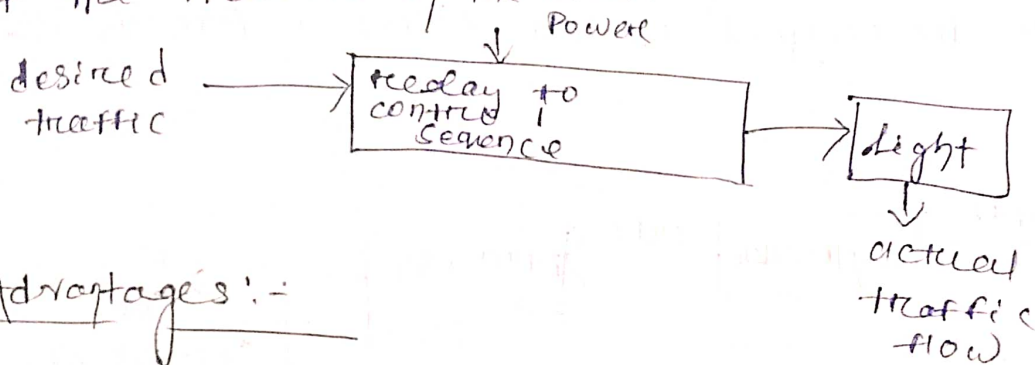 Power
desired
traffic
Relay to
control
sequence
Light
actual
traffic
flow
Advantages :-